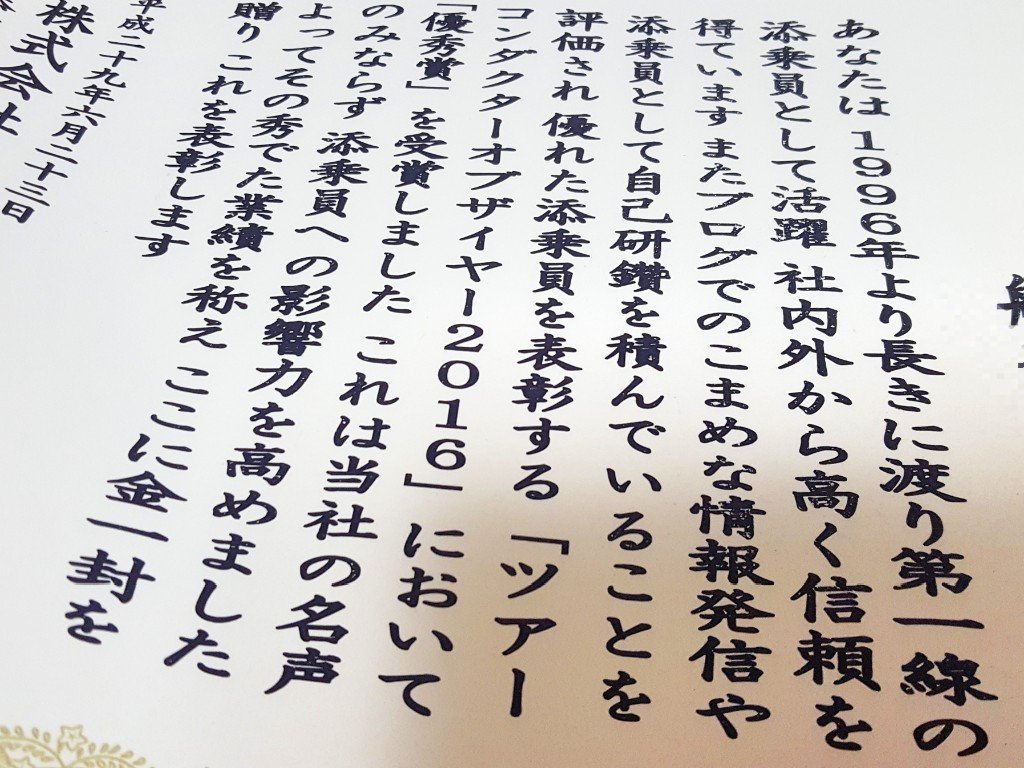 あなたは1996年より長きに渡り第一線の
添乗員として活躍 社内外から高く信頼を
得ています またブログでのこまめな情報発信や
添乗員として自己研鑽を積んでいることを
評価され 優れた添乗員を表彰する「ツアー
コンダクターオブザイヤー2016」において
「優秀賞」を受賞しました これは当社の名声
のみならず 添乗員への影響力を高めました
よってその秀でた業績を称え ここに金一封を
贈り これを表彰します
平成二十九年六月二十三日
株式会社